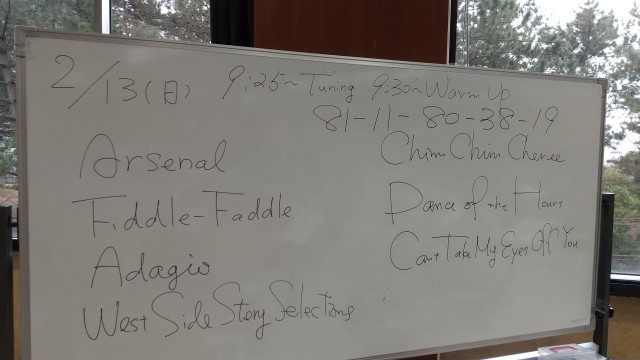 2/13(日) 9:25~Tuning 9:30~Warm Up
81-11-80-38-19
Arsenal
Fiddle-Faddle
Adagio
West Side Story Selections
Chim Chim Cheree
Dance of the Hours
Can't Take My Eyes Off You